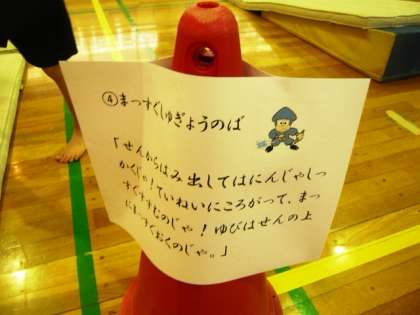 ④まっすぐしゅぎょうのば
「せんからはみ出してはにんじゃしっ
かくじゃ!ていねいにころがって、まっ
すぐすすむのじゃ!ゆびはせんの上
にまっすぐおくのじゃ。」